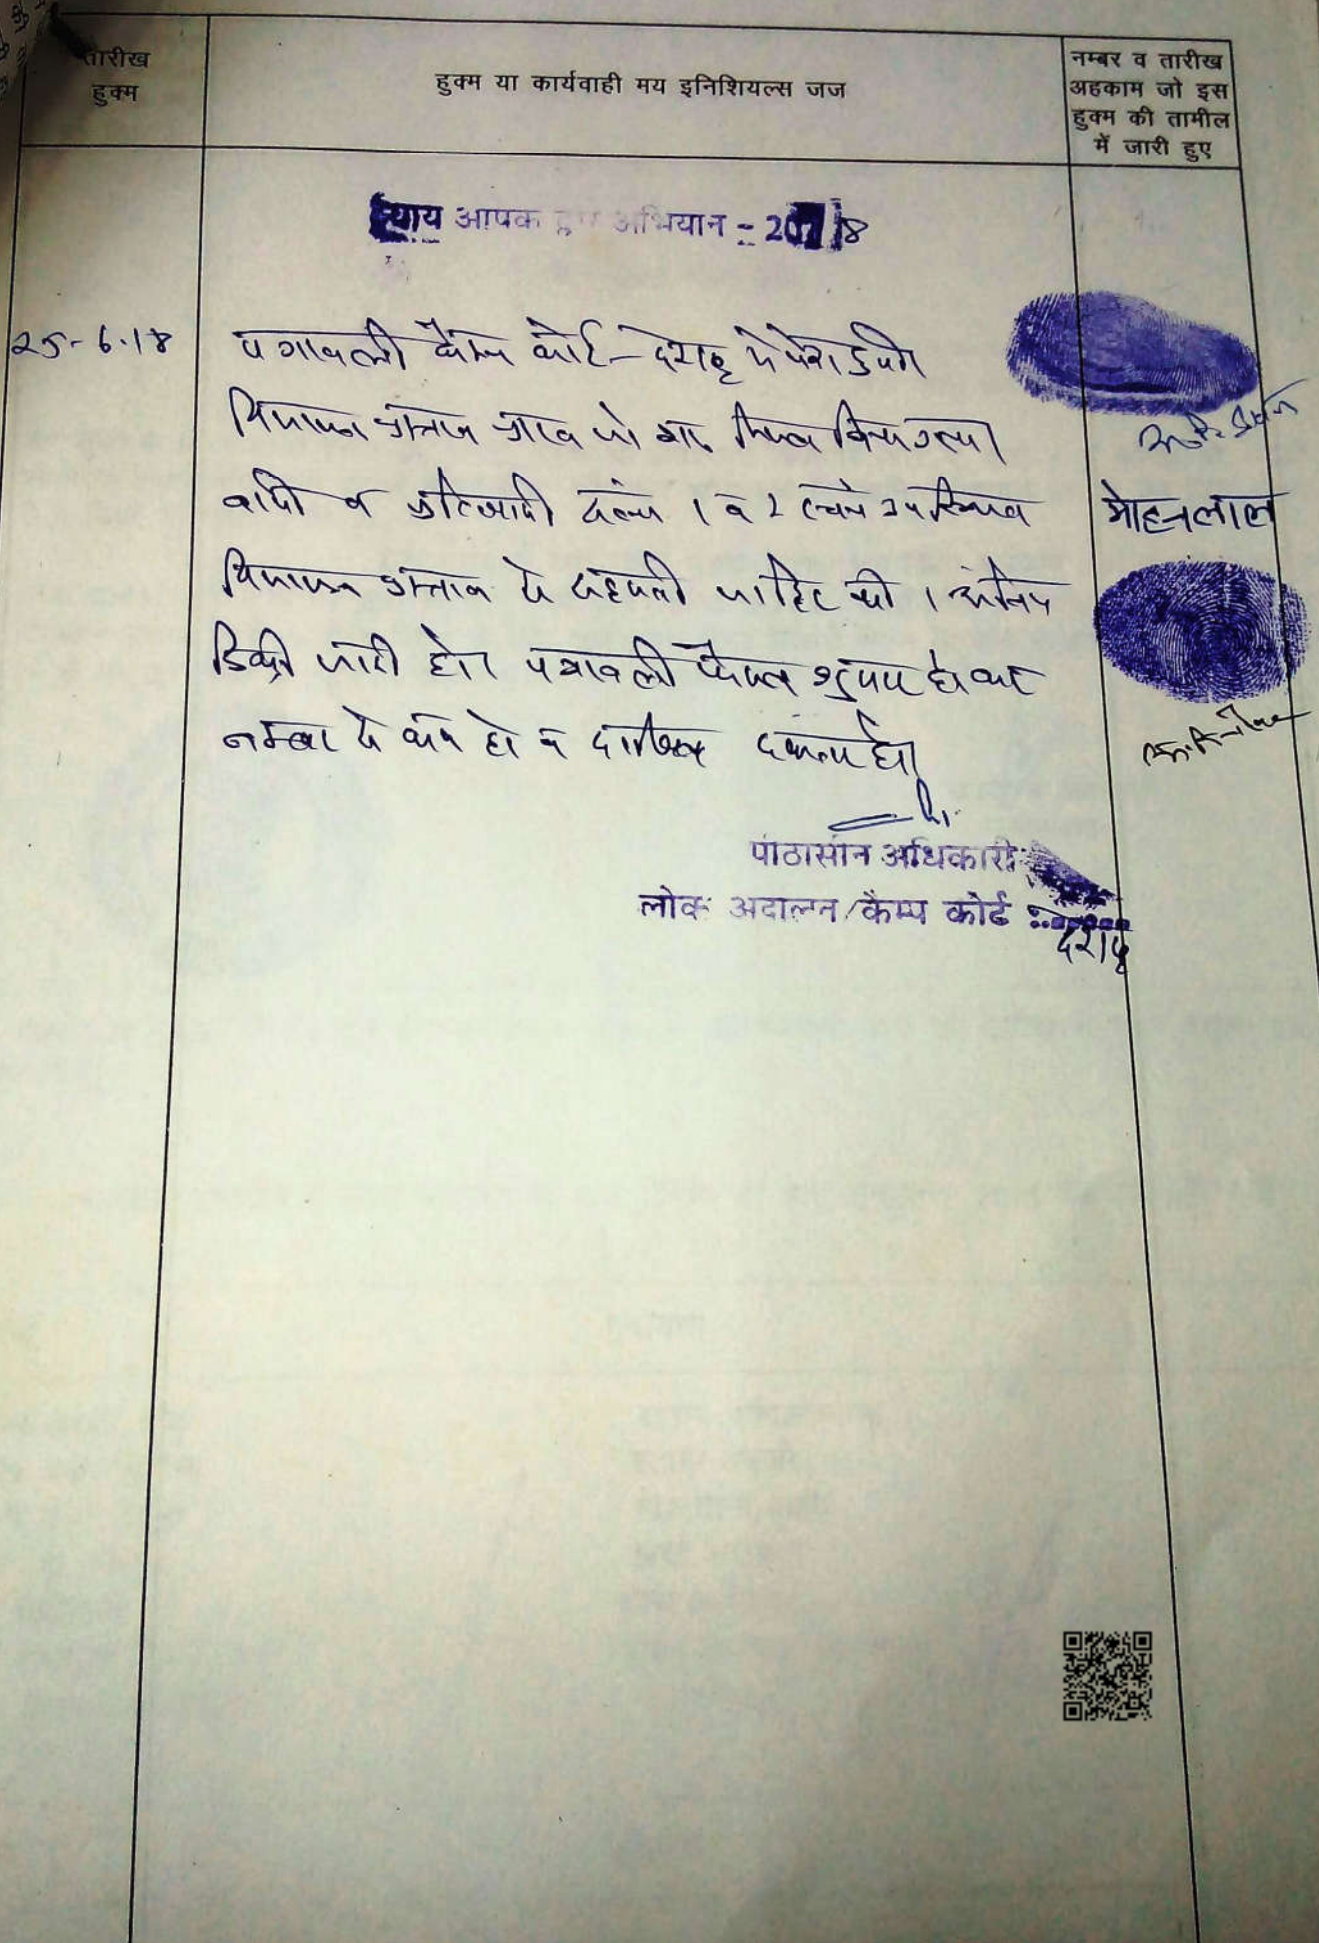 तारीख
हुक्म
हुक्म या कार्यवाही मय इनिशियल्स जज
नम्बर व तारीख
अहकाम जो इस
हुक्म की तामील
में जारी हुए
न्याय आपके द्वार अभियान :- 2018
25-6-18 पत्रावली कैम्प कोर्ट - में पेश हुयी
विभाजन प्रस्ताव प्राप्त
वादी व प्रतिवादी 1 व 2 उपस्थित
विभाजन प्रस्ताव से सहमती जाहिर की । अंतिम
डिक्री जारी हो। पत्रावली फैसल शुमार होकर
नम्बर से कम हो व दाखिल दफ्तर हो।
मोहनलाल
पीठासीन अधिकारी
लोक अदालत/कैम्प कोर्ट